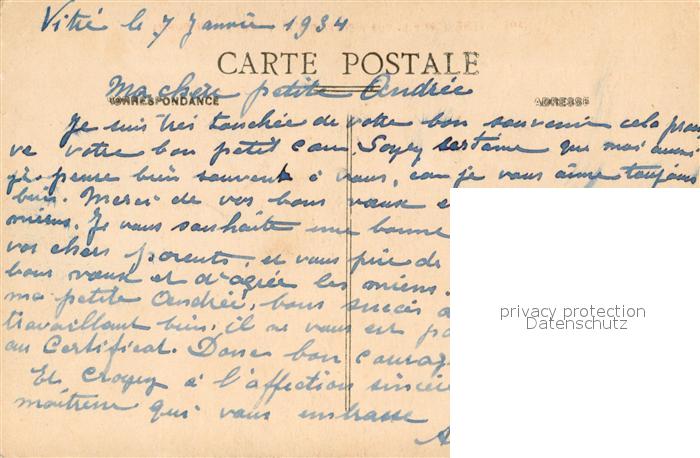 Vitré le 7 Janvier 1934
CARTE POSTALE
Ma chère petite Andrée
CORRESPONDANCE
ADRESSE
Je suis très touchée de votre bon souvenir cela prou
ve votre bon petit cœur. Soyez certaine que moi aussi
je pense bien souvent à vous, car je vous aime toujours
bien. Merci de vos bons vœux et
miens. Je vous souhaite une bonne
vos chers parents, et vous prie de
bons vœux et d'agréer les miens.
ma petite Andrée, bons succès
travaillant bien, il ne vous est
au Certificat. Donc bon courage
Et croyez à l'affection sincère
maîtresse qui vous embrasse
A
privacy protection
Datenschutz